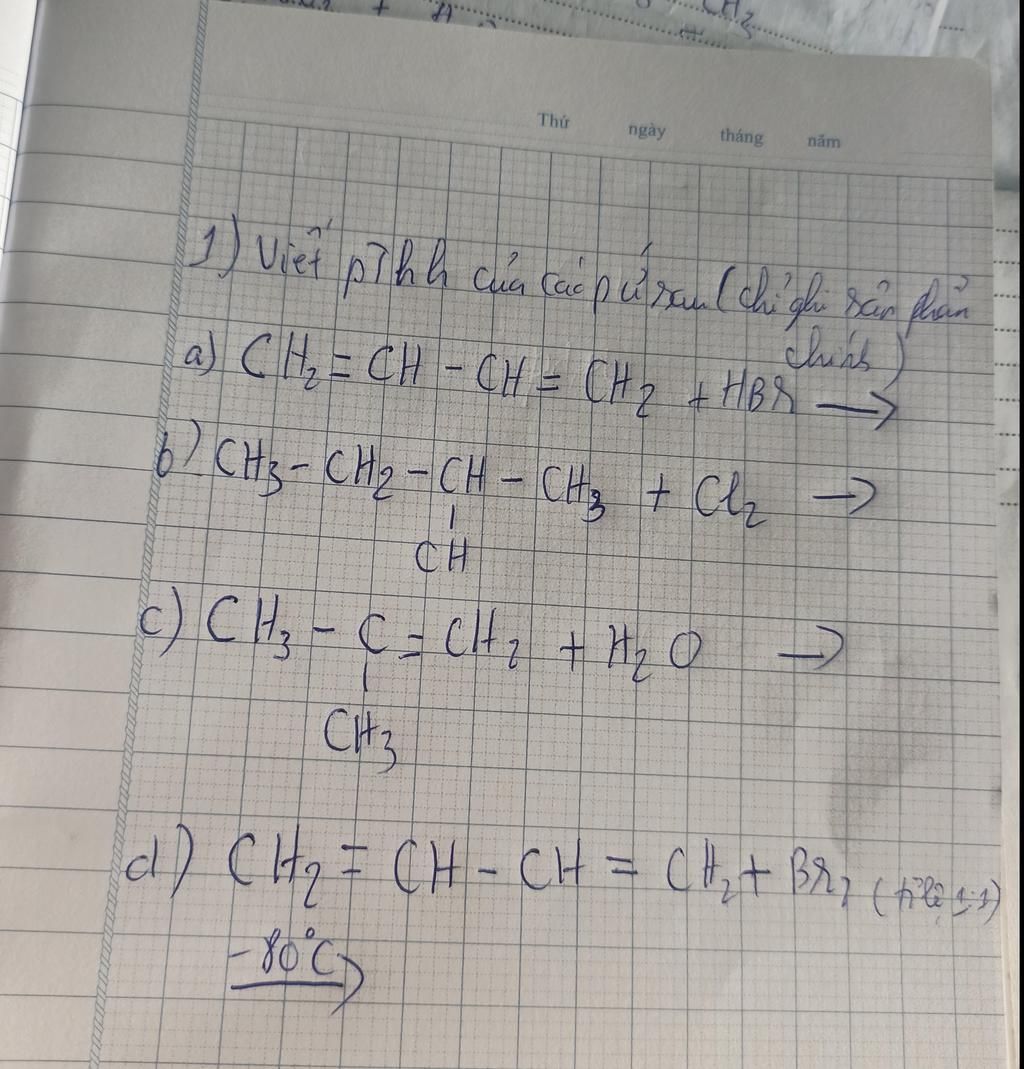 CH3
Thứ ngày tháng năm
1) Viết pThh của các pứ sau (chỉ ghi sản phẩm
chính)
a) CH2 = CH - CH = CH2 + HBr →
b) CH3 - CH2 - CH - CH3 + Cl2 →
CH
c) CH3 - C = CH2 + H2O →
CH3
d) CH2 = CH - CH = CH2 + Br2 (tỉ lệ 1:1)
-80°C →